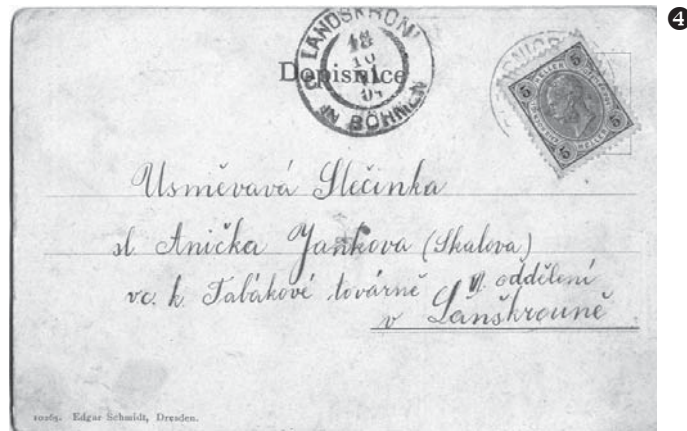 ❹
LANDSKRON
18
10
IN BÖHMEN
Dopisnice
5 HELLER 5
5 HELLER 5
Usměvavá Slečinka
sl. Anička Jankova (Skalova)
v c. k. Tabákové továrně VI. oddělení
v Lanškrouně
10265. Edgar Schmidt, Dresden.